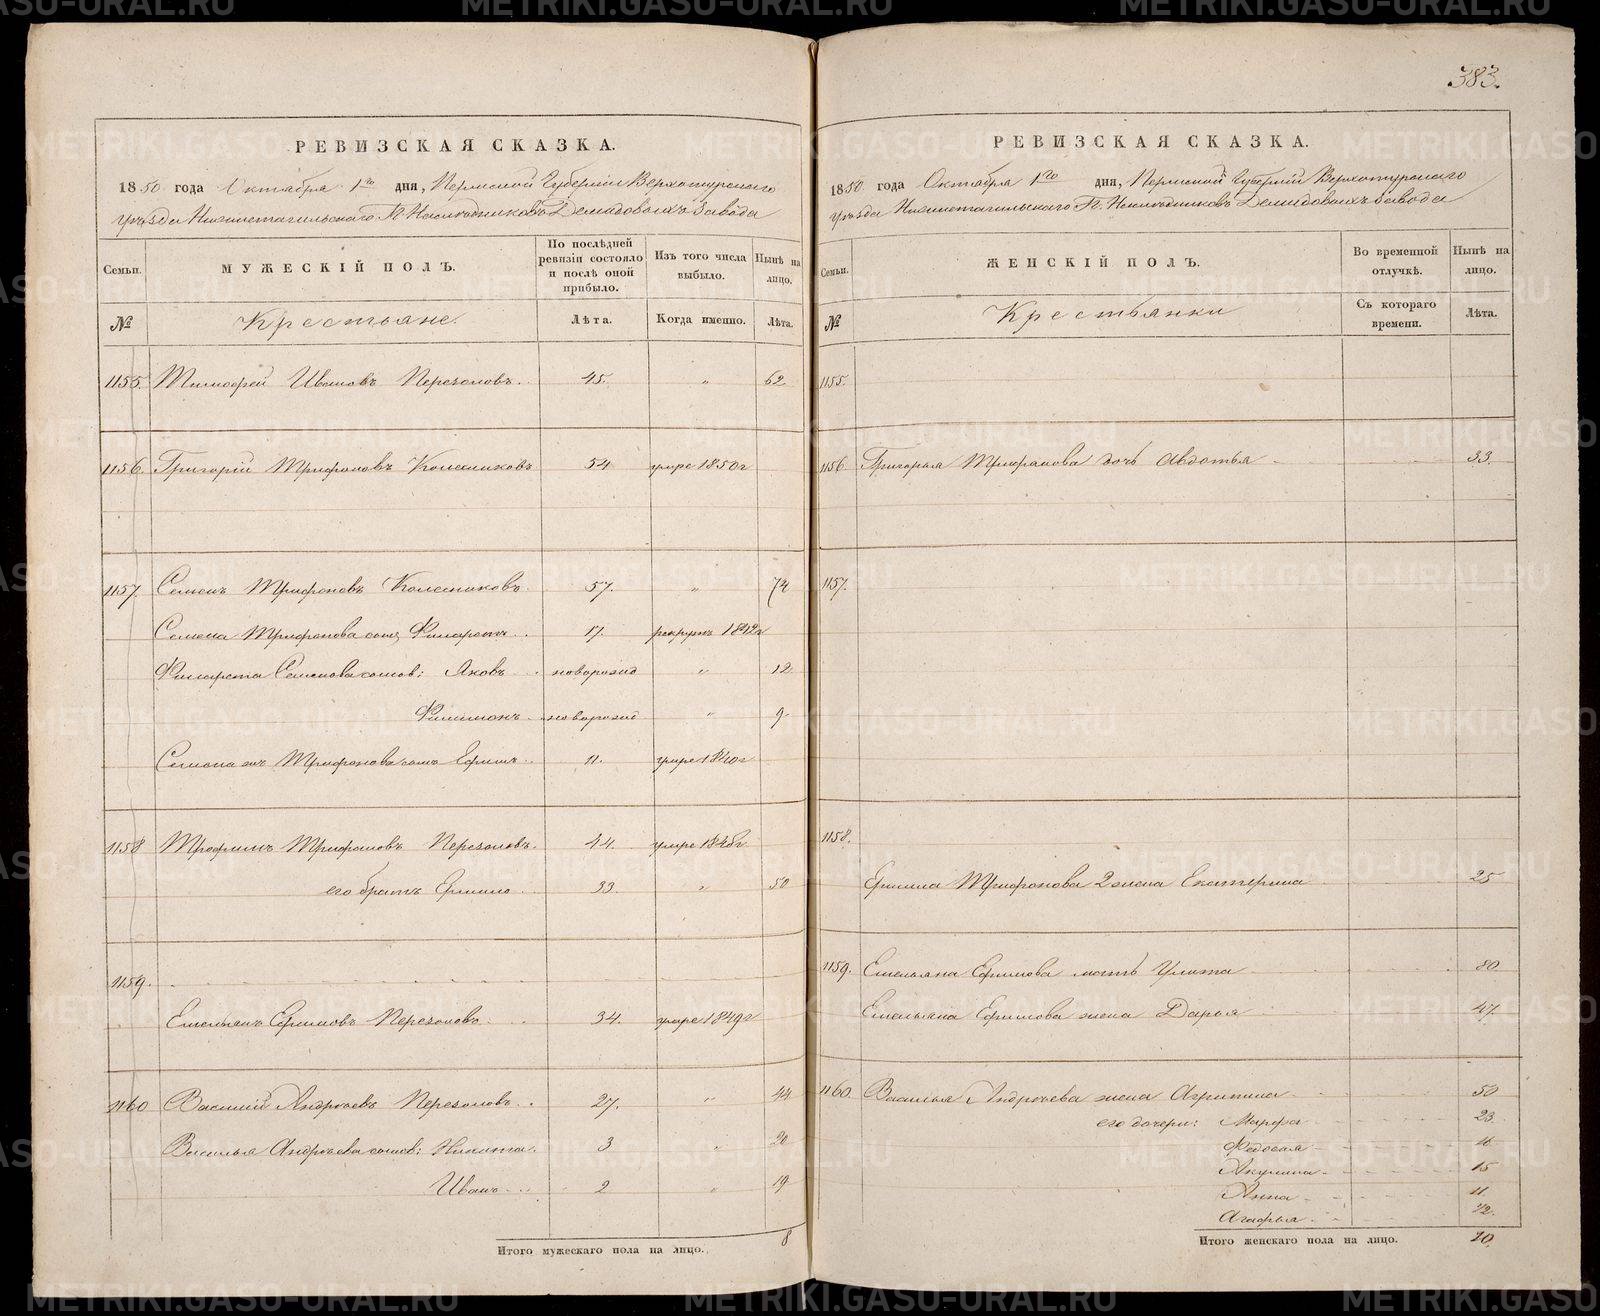 383.
РЕВИЗСКАЯ СКАЗКА.
1850 года Октября 1го дня, Пермской Губерніи Верхотурскаго
уѣзда Нижнетагильскаго Г.г. Наслѣдниковъ Демидовыхъ завода
Семьи. МУЖЕСКІЙ ПОЛЪ. По послѣдней ревизіи состояло и послѣ оной прибыло. Изъ того числа выбыло. Нынѣ на лицо.
№ Крестьяне. Лѣта. Когда именно. Лѣта.
1155. Тимофей Ивановъ Перезоловъ. 45. " 62
1156. Григорій Трифоновъ Колесниковъ 54 умре 1850г
1157. Семенъ Трифоновъ Колесниковъ. 57. " 74
Семена Трифонова сынъ Филаретъ. 17. рекрутъ 1842г
Филарета Семенова сыновья: Яковъ новорожд " 12
Филимонъ. новорожд " 9
Семена жъ Трифонова сынъ Ефимъ. 11. умре 1840г
1158 Трофимъ Трифоновъ Перезоловъ. 44. умре 1846г
его братъ Ермило 33. " 50
1159.
Емельянъ Ефимовъ Перезоловъ. 34. умре 1849г
1160 Василий Андреевъ Перезоловъ. 27. " 44
Василья Андреева сынов: Никита. 3 " 20
Иванъ 2 " 19
Итого мужескаго пола на лицо. 8
РЕВИЗСКАЯ СКАЗКА.
1850 года Октября 1го дня, Пермской Губерніи Верхотурскаго
уѣзда Нижнетагильскаго Г.г. Наслѣдниковъ Демидовыхъ завода
Семьи. ЖЕНСКІЙ ПОЛЪ. Во временной отлучкѣ. Нынѣ на лицо.
№ Крестьянки Съ котораго времени. Лѣта.
1155.
1156 Григорья Трифонова дочь Авдотья 33.
1157.
1158.
Ермила Трифонова 2 жена Екатерина 25
1159. Емельяна Ефимова мать Улита 80
Емельяна Ефимова жена Дарья 47
1160. Василья Андреева жена Агрипина 50
его дочери: Марфа 23
Федосья
Акулина 15
Анна 11
Агафья 12
Итого женскаго пола на лицо. 10.
METRIKI.GASO-URAL.RU